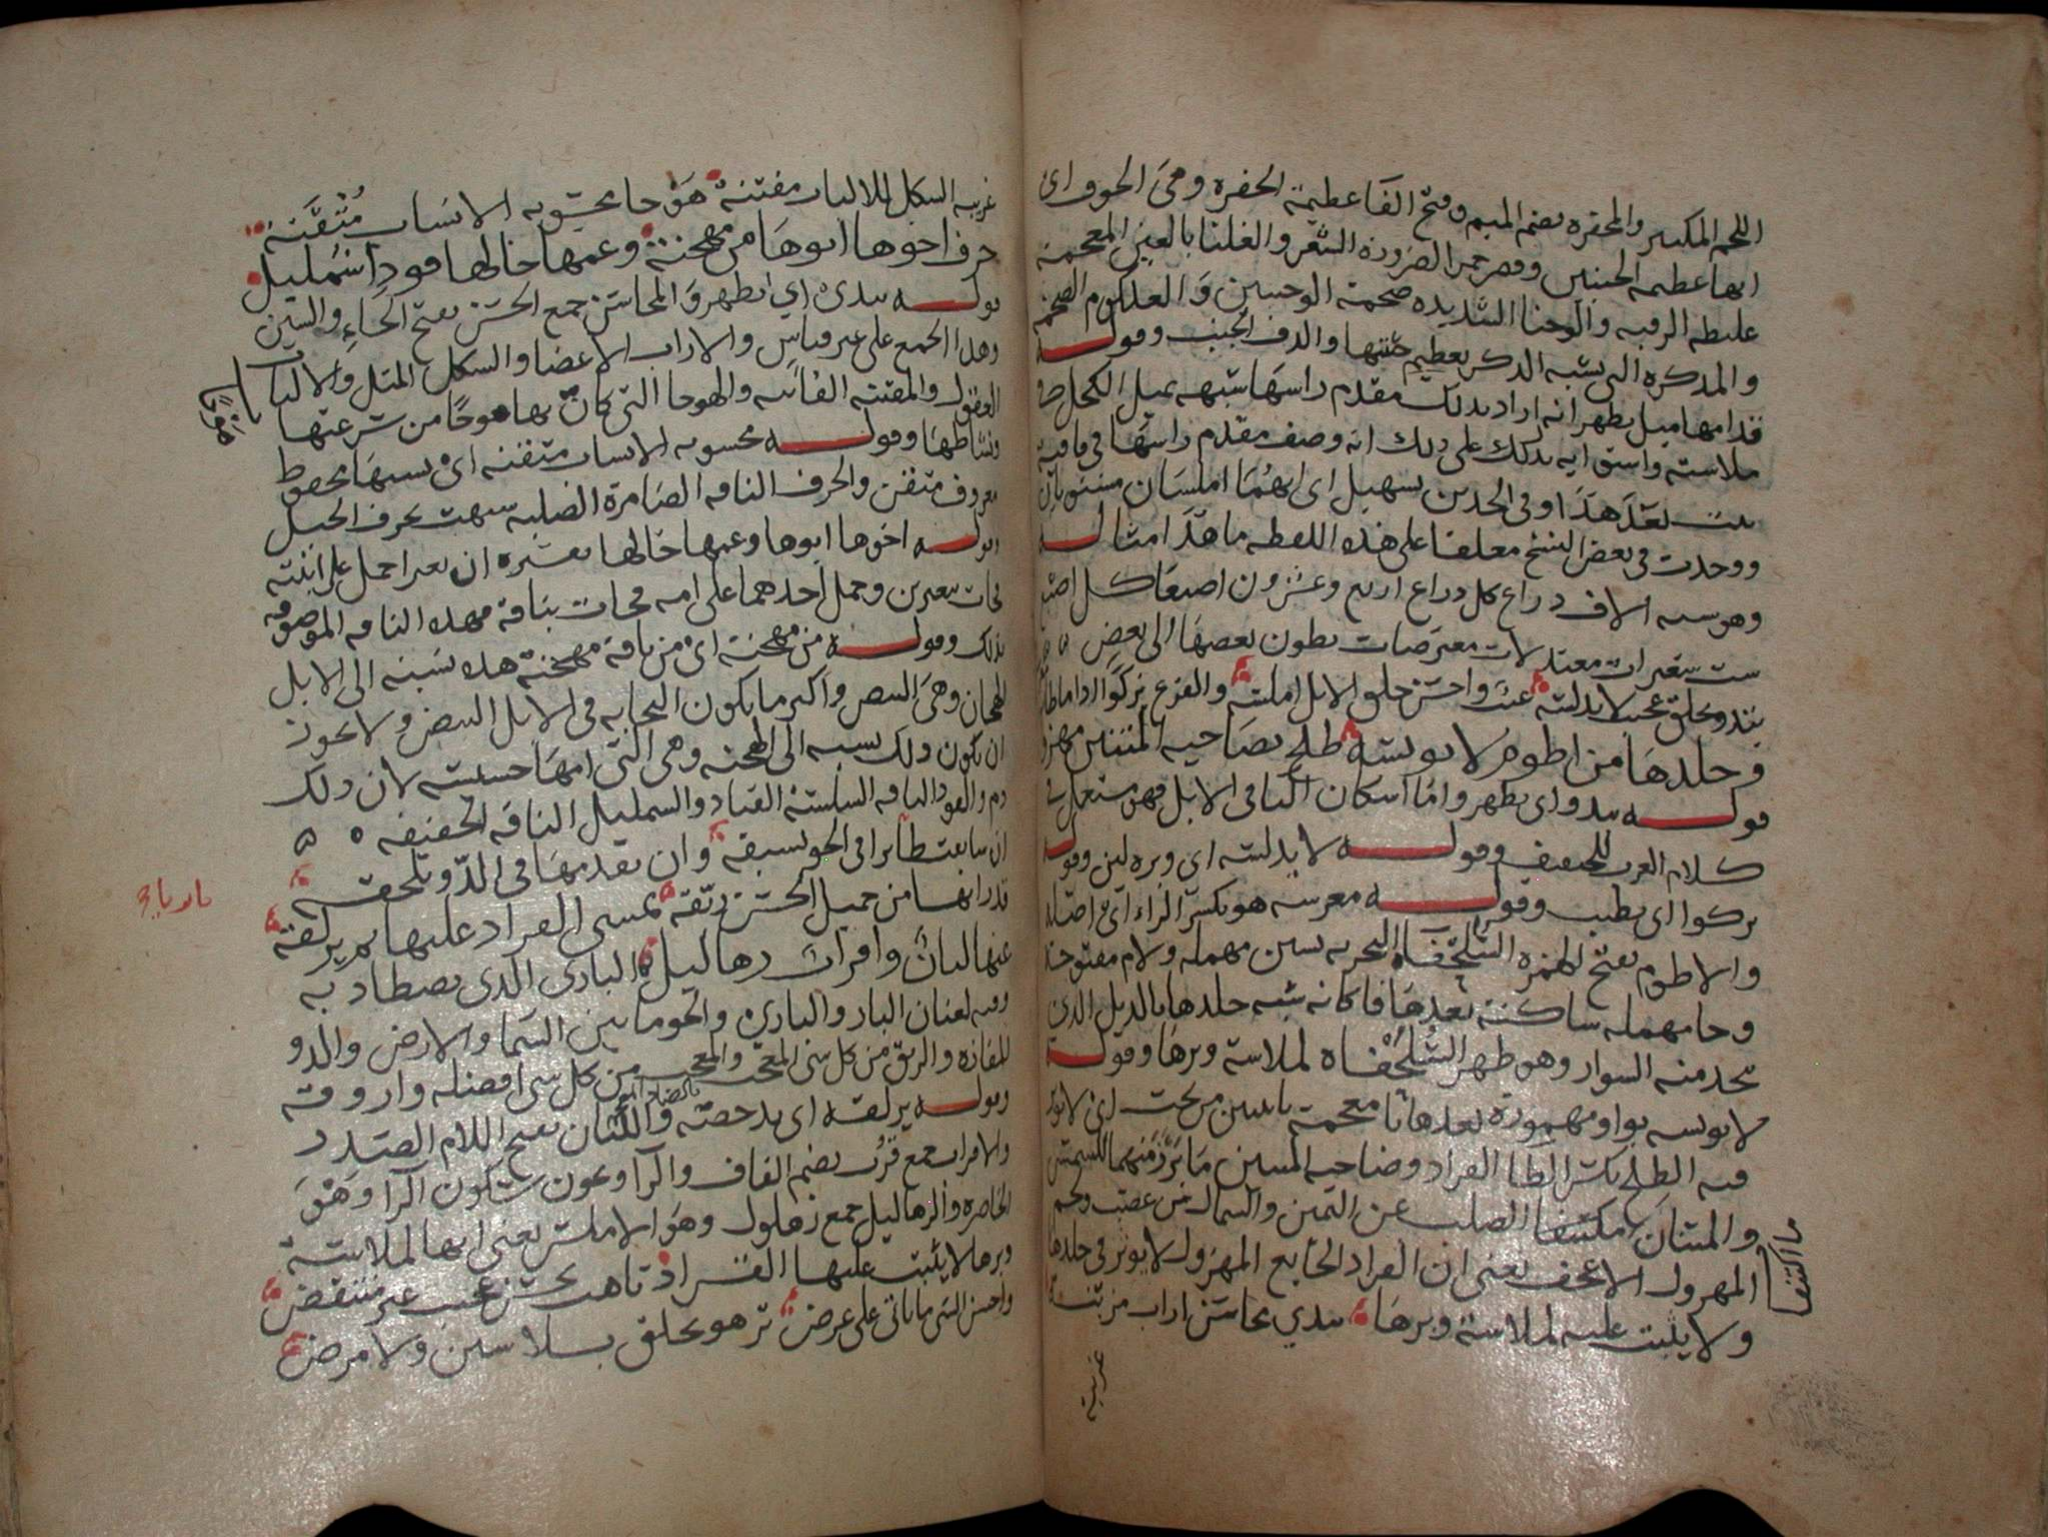 اللحم المكتنز والمحفره بضم الميم وفتح الفا عظيمة الحفره وهى الجوف اى
انها عظيمة الجنبين وقصر حمر الضرورة الشعر والغلبا بالغين المعجمة
غليظه الرقبه والوجنا الشديده ضخمة الوجنتين والعلكوم الضخمه
والمذكره التى تشبه الذكر بعظيم خلقتها والدف الجنب وقولـــه
قدامها ميل يظهر انه اراد بذلك مقدم راسها شبهه بميل الكحل
ملاسته واستوايه يدلك على ذلك انه وصف مقدم راسها فى قافية
بيت بعد هذا وفى الخدين تسهيل اى انهما املسان مستويان
ووجدت فى بعض النسخ معلقا على هذه اللفظه ما هذا مثالـــه
وهو سته الاف ذراع كل ذراع اربع وعشرون اصبعا كل اصبع
ست شعيرات معتدلات معترضات بطون بعضها الى بعض
تبدو بخلق عجيب لا يدلسه عيب واحسن خلق الابل املسه والفرع يزكو اذا ما طاب
وجلدها من اطوم لا يويسه طلح بضاحية المتنين مهزول
قولـــه تبدو اى تظهر واما اسكان اليا فى الابل فهو مستعمل فى
كلام العرب للتخفيف وقولـــه لا يدلسه اى وبره لين وقولـــه
يزكوا اى يطيب وقولـــه مغرسه هو بكسر الراء اى اصله
والاطوم بفتح الهمزه السلحفاه البحريه بسين مهمله ولام مفتوحه
وحا مهمله ساكنة بعدها فا كانه شبه جلدها بالذبل الذى
تتخذ منه السوار وهو ظهر السلحفاه لملاسة وبرها وقولـــه
لا يويسه بواو مهموزة بعدها يا معجمة باثنين من تحت اى لا يوثر
فيه الطلح بكسر الطا القراد وضاحية المتنين ما برز منهما للشمس
والمتنان مكتنفا الصلب عن اليمين والشمال من عصب ولحم
المهزول الاعجف يعنى ان القراد الجايع المهزول لا يوثر فى جلدها
ولا يثبت عليه لملاسة وبرها تبدي محاسن اراب مزينة
مكتنفا
غريبة
غريبة الشكل للالباب مفتنة هوجا محسوبه الانساب متقنة
حرف اخوها ابوها من مهجنة وعمها خالها قودا شمليل
قولـــه تبدى اي تظهر والمحاسن جمع الحسن بفتح الحاء والسين
وهذا الجمع على غير قياس والاراب الاعضا والشكل المثل والالباب
العقول والمفتنه الفاتنه والهوجا التى كان بها هوجا من سرعتها
ونشاطها وقولـــه محسوبه الانساب متقنه اى نسبها محفوظ
معروف متقن والحرف الناقه الضامرة الصلبه شبهت بحرف الجبل
قولـــه اخوها ابوها وعمها خالها تفسيره ان بعيرا حمل على ابنته
فجات ببعيرين وحمل احدهما على امه فجات بناقة فهذه الناقه الموصوفه
بذلك وقولـــه من مهجنة اى من ناقة مهجنة هذه نسبة الى الابل
الهجان وهى البيض واكثر ما يكون النجابه فى الابل البيض ولا يجوز
ان يكون ذلك نسبه الى الهجنه وهى التى امها خسيسة لان ذلك
ذم والقودا الناقه السلسة القياد والشمليل الناقه الخفيفه
ان سابقت طايرا فى الجو تسبقه وان تقدمها فى الدو تلحقه
قد زانها من جميل الحسن ريقه يمشى القراد عليها ثم يزلقه
عنها لبان واقراب زهاليل البازى الذى يصطاد به
وفيه لغتان الباز والبازى والجو ما بين السما والارض والدو
المفازه والريق من كل شى المعجب من كل شى افضله واروقه
وقولـــه يزلقه اى يدحضه واللبان بفتح اللام الصدر
والاقراب جمع قرب بضم القاف والرا وبجوز سكون الرا وهو
الخاصره والزهاليل جمع زهلول وهو الاملس يعنى انها لملاسة
وبرها لا يثبت عليها القراد تاهت بحسن عجيب غير منتقض
واحسن الشى ما ياتى على عرض تزهو بخلق بلا شين ولا مرض